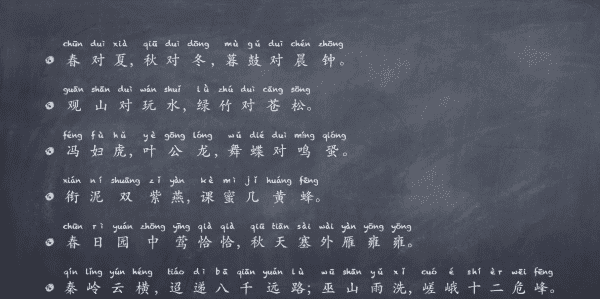 chūn duì xià qiū duì dōng mù gǔ duì chén zhōng
春对夏，秋对冬，暮鼓对晨钟。
guān shān duì wán shuǐ lǜ zhú duì cāng sōng
观山对玩水，绿竹对苍松。
féng fù hǔ yè gōng lóng wǔ dié duì míng qióng
冯妇虎，叶公龙，舞蝶对鸣蛩。
xián ní shuāng zǐ yàn kè mì jǐ huáng fēng
衔泥双紫燕，课蜜几黄蜂。
chūn rì yuán zhōng yīng qià qià qiū tiān sài wài yàn yōng yōng
春日园中莺恰恰，秋天塞外雁雍雍。
qín lǐng yún héng tiáo dì bā qiān yuǎn lù wū shān yǔ xǐ cuó é shí èr wēi fēng
秦岭云横，迢递八千远路；巫山雨洗，嵯峨十二危峰。